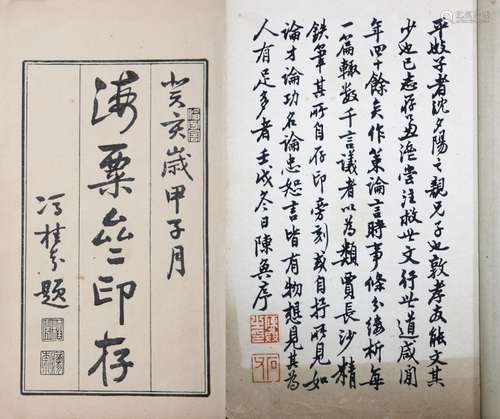 平子者沈夕陽之親兄子也敦孝友能文其
少也已志存匡濟嘗注救世文行世道咸間
年四十餘矣作策論言時事條分縷析每
一篇輒數千言議者以為類賈長沙精
鉄筆其所自存印旁刻或自抒所見如
論才論功名論忠恕言皆有物想見其為
人有足多者壬戌冬日陳奐序
癸亥歲甲子月
海粟印存
馮桂芬題